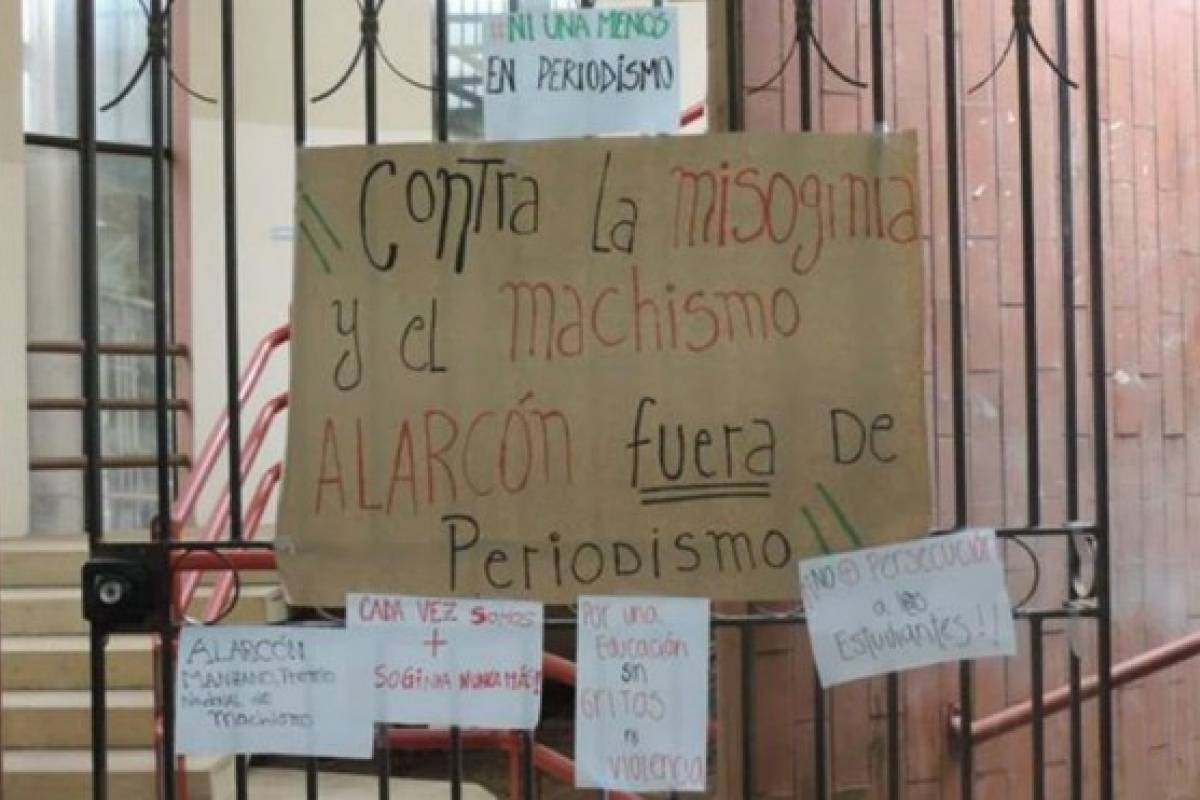 #NI UNA MENOS
EN PERIODISMO
Contra la misoginia
y el machismo
ALARCÓN fuera DE
Periodismo
¡NO a Persecución
a los
Estudiantes!!
ALARCÓN
MANZANO, Premio
Nacional de
Machismo
CADA VEZ SOMOS
+
SOGINIA NUNCA MÁS!
Por una
Educación
sin
GRITOS
ni
violencia